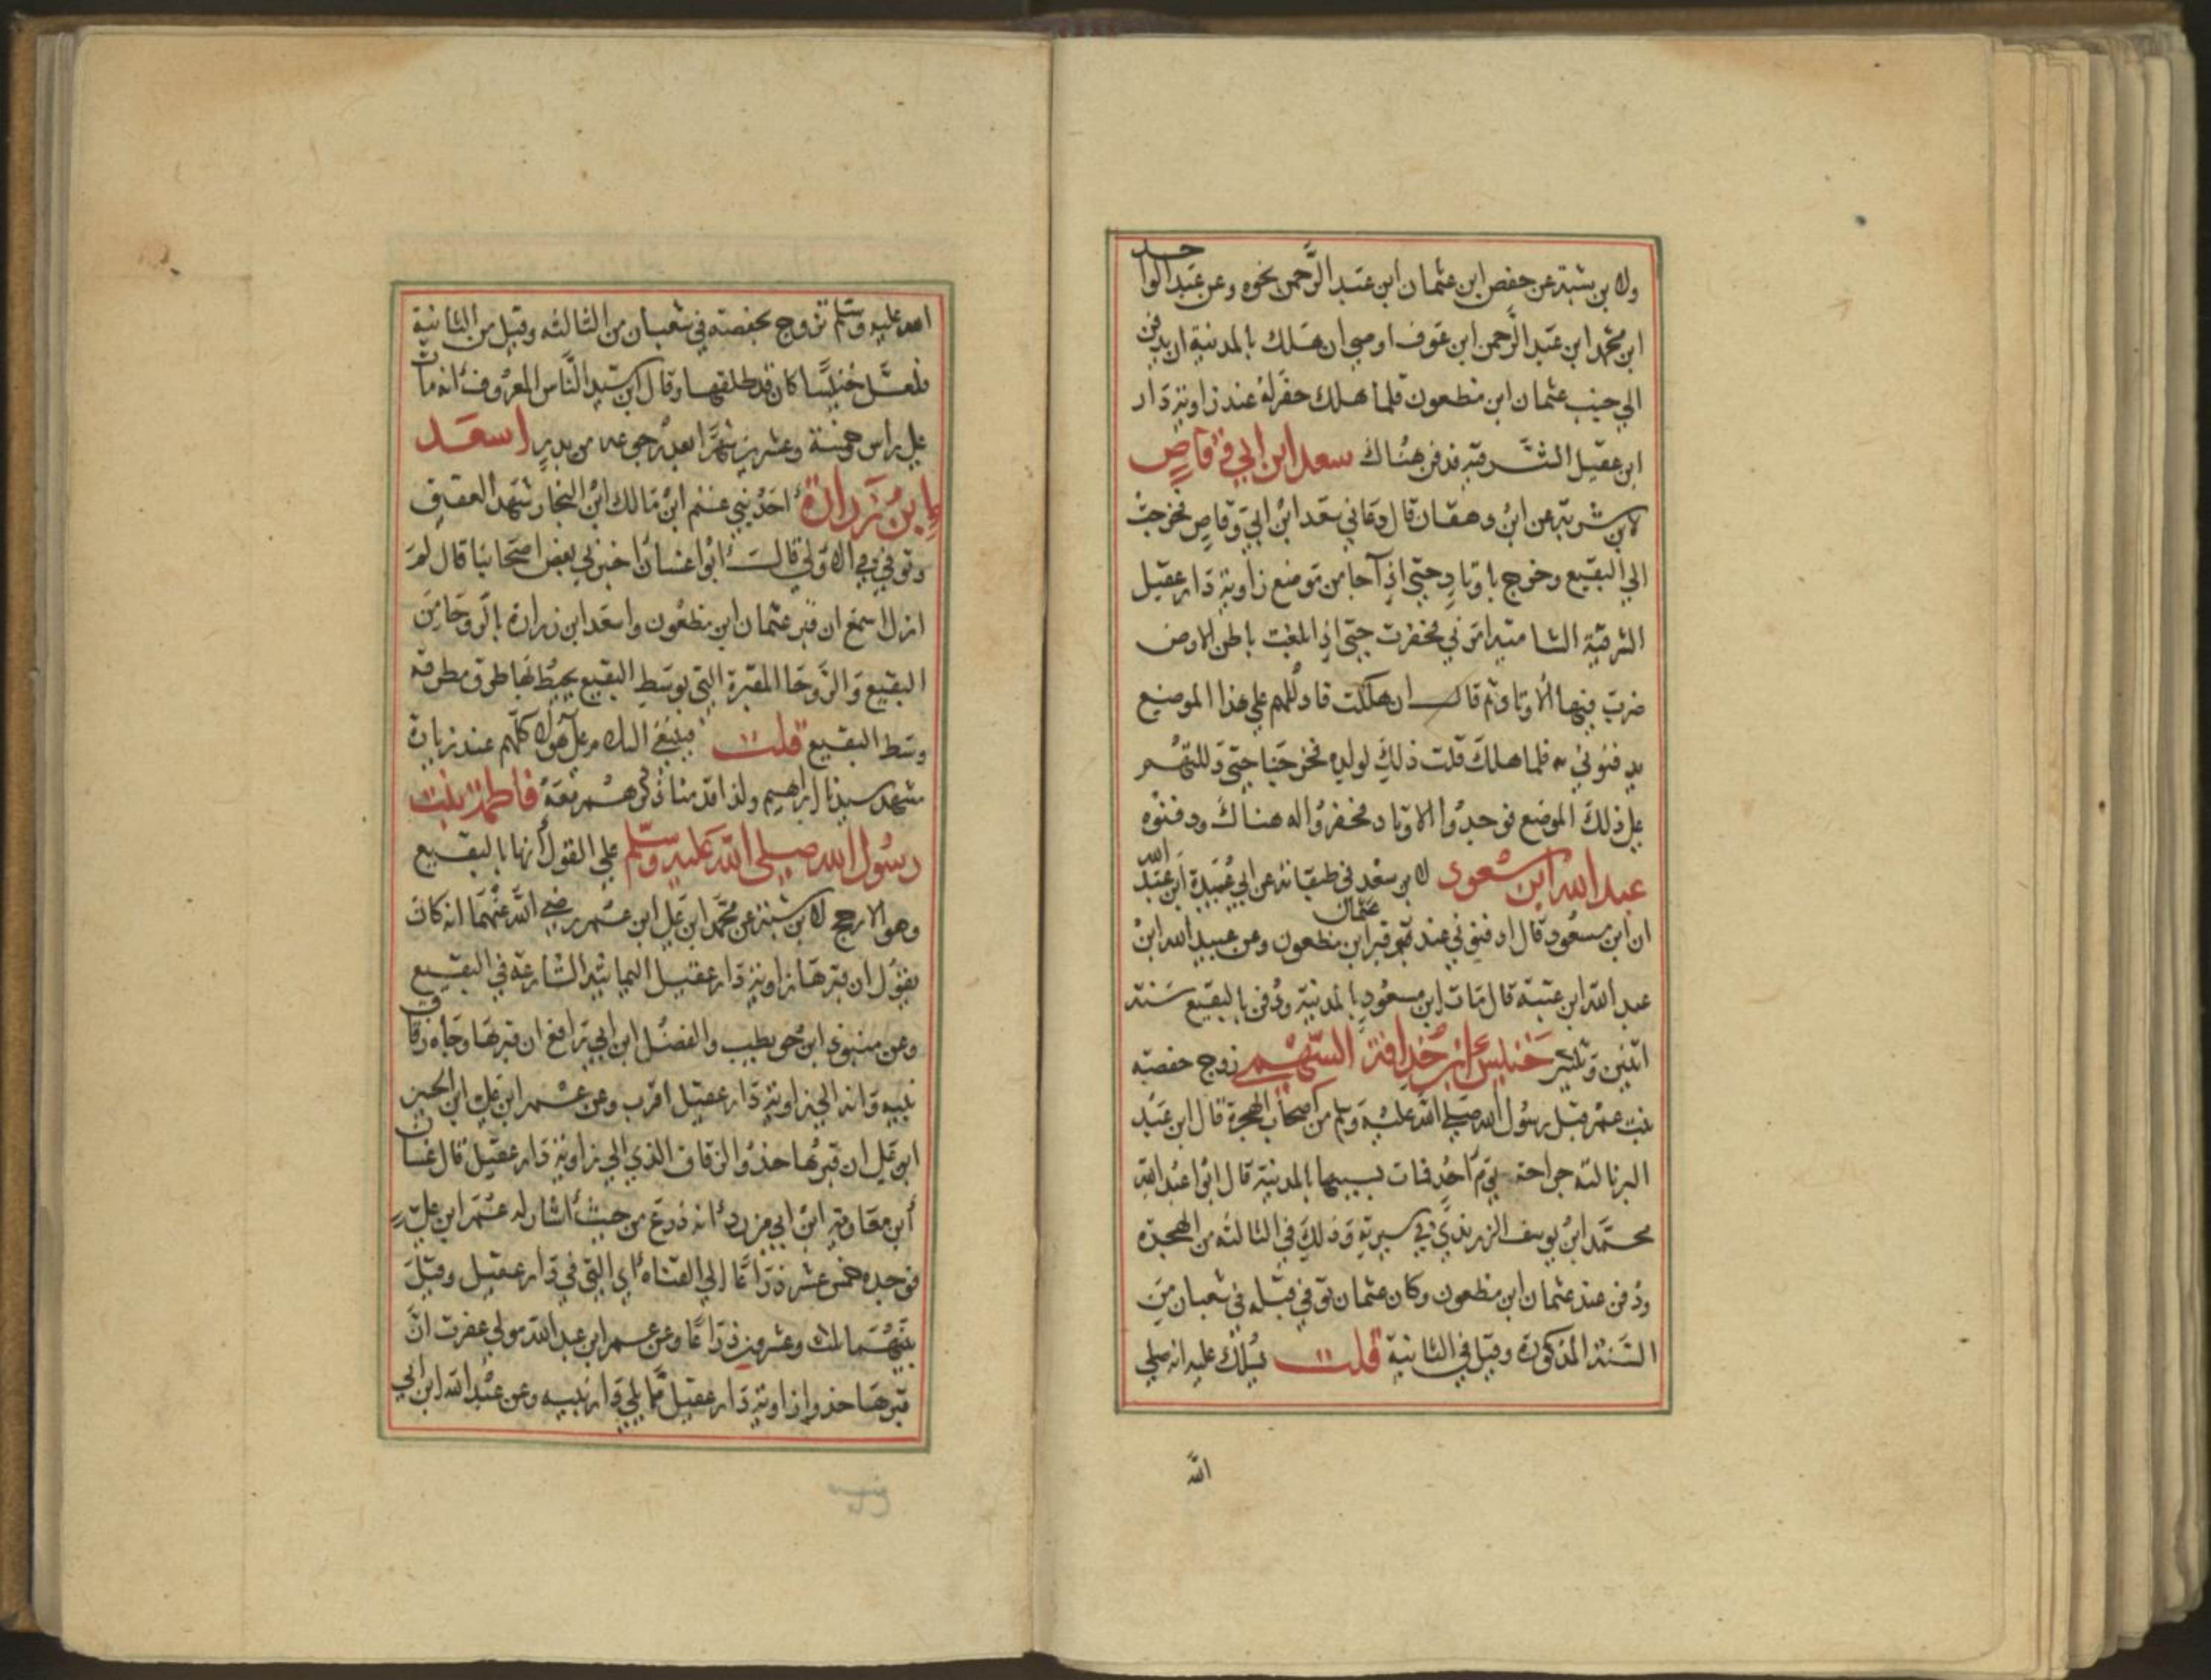 ولابن شبة عن حفص ابن عثمان ابن عبد الرحمن نحوه وعن عبد الواحد
ابن محمد ابن عبد الرحمن ابن عوف اوصي ان هلك بالمدينة ان يدفن
الي جنب عثمان ابن مظعون فلما هلك حفر له عند زاوية دار
ابن عقيل الشرقية فدفن هناك سعد ابن ابي وقاص
لابن شبة عن ابن دهقان قال دعاني سعد ابن ابي وقاص فخرجت
الي البقيع وخرج باوتاد حتي اذا جا من موضع زاوية دار عقيل
الشرقية الشامية امرني فحفرت حتي اذا بلغت باطن الارض
ضرب فيها الاوتاد ثم قال ان هلكت فادللهم علي هذا الموضع
يدفنوني به فلما هلك قلت ذلك لولده فخرجنا حتي دللتهم
علي ذلك الموضع فوجدوا الاوتاد فحفروا له هناك ودفنوه
عبد الله ابن مسعود لابن سعد في طبقاته عن ابي عبيدة ابن عبد الله
ان ابن مسعود قال ادفنوني عند قبر عثمان ابن مظعون وعن عبيد الله ابن
عبد الله ابن عتبة قال مات ابن مسعود بالمدينة ودفن بالبقيع سنة
اثنين وثلثين خنيس ابن حذافة السهمي زوج حفصة
بنت عمر قبل رسول الله صلي الله عليه وسلم من اصحاب الهجرة قال ابن عبد
البر نالته جراحة يوم احد فمات بسببها بالمدينة قال ابوا عبد الله
محمد ابن يوسف الزرندي في سيرته وذلك في الثالثه من الهجرة
ودفن عند عثمان ابن مظعون وكان عثمان توفي قبله في شعبان من
السنة المذكورة وقيل في الثانية قلت يشكل عليه انه صلي
الله
الله عليه وسلم تزوج بحفصة في شعبان من الثالثه وقيل من الثانية
فلعل خنيسا كان قد طلقها وقال ابن سيد الناس المعروف انه مات
علي راس خمسة وعشرين شهرا بعد رجوعه من بدر اسعد
ابن زرارة احد بني غنم ابن مالك ابن النجار شهد العقبة
وتوفي في الاولي قالت ابوا غسان اخبرني بعض اصحابنا قال لم
ازل اسمع ان قبر عثمان ابن مظعون واسعد ابن زرارة بالروحا من
البقيع والروحا المقبرة التي بوسط البقيع يحيط بها طرق مطرقة
وسط البقيع قلت فينبغي السلام علي هولا كلهم عند زيارة
مشهد سيدنا ابراهيم ولذا قدمنا ذكرهم معه فاطمة بنت
رسول الله صلي الله عليه وسلم علي القول انها بالبقيع
وهو الارجح لابن شبة عن محمد ابن علي ابن عمر رضي الله عنهما انه كان
يقول ان قبرها زاوية دار عقيل اليمانية الشارعة في البقيع
وعن منبوذ ابن حويطب والفضل ابن ابي رافع ان قبرها وجاه زقاق
نبيه وانه الي زاوية دار عقيل اقرب وعن عمر ابن علي ابن الحسين
ابن علي ان قبرها حذو الزقاق الذي الي زاوية دار عقيل قال غسان
ابن معاوية ابن ابي مزرد انه ذرع من حيث اشار له عمر ابن علي
فوجده خمس عشر ذراعا الي القناه اي التي في دار عقيل وقيل
بينهما ثلث وعشرون ذراعا وعن عمر ابن عبد الله مولي عفرت ان
قبرها حذو زاوية دار عقيل مما يلي دار نبيه وعن عبد الله ابن ابي